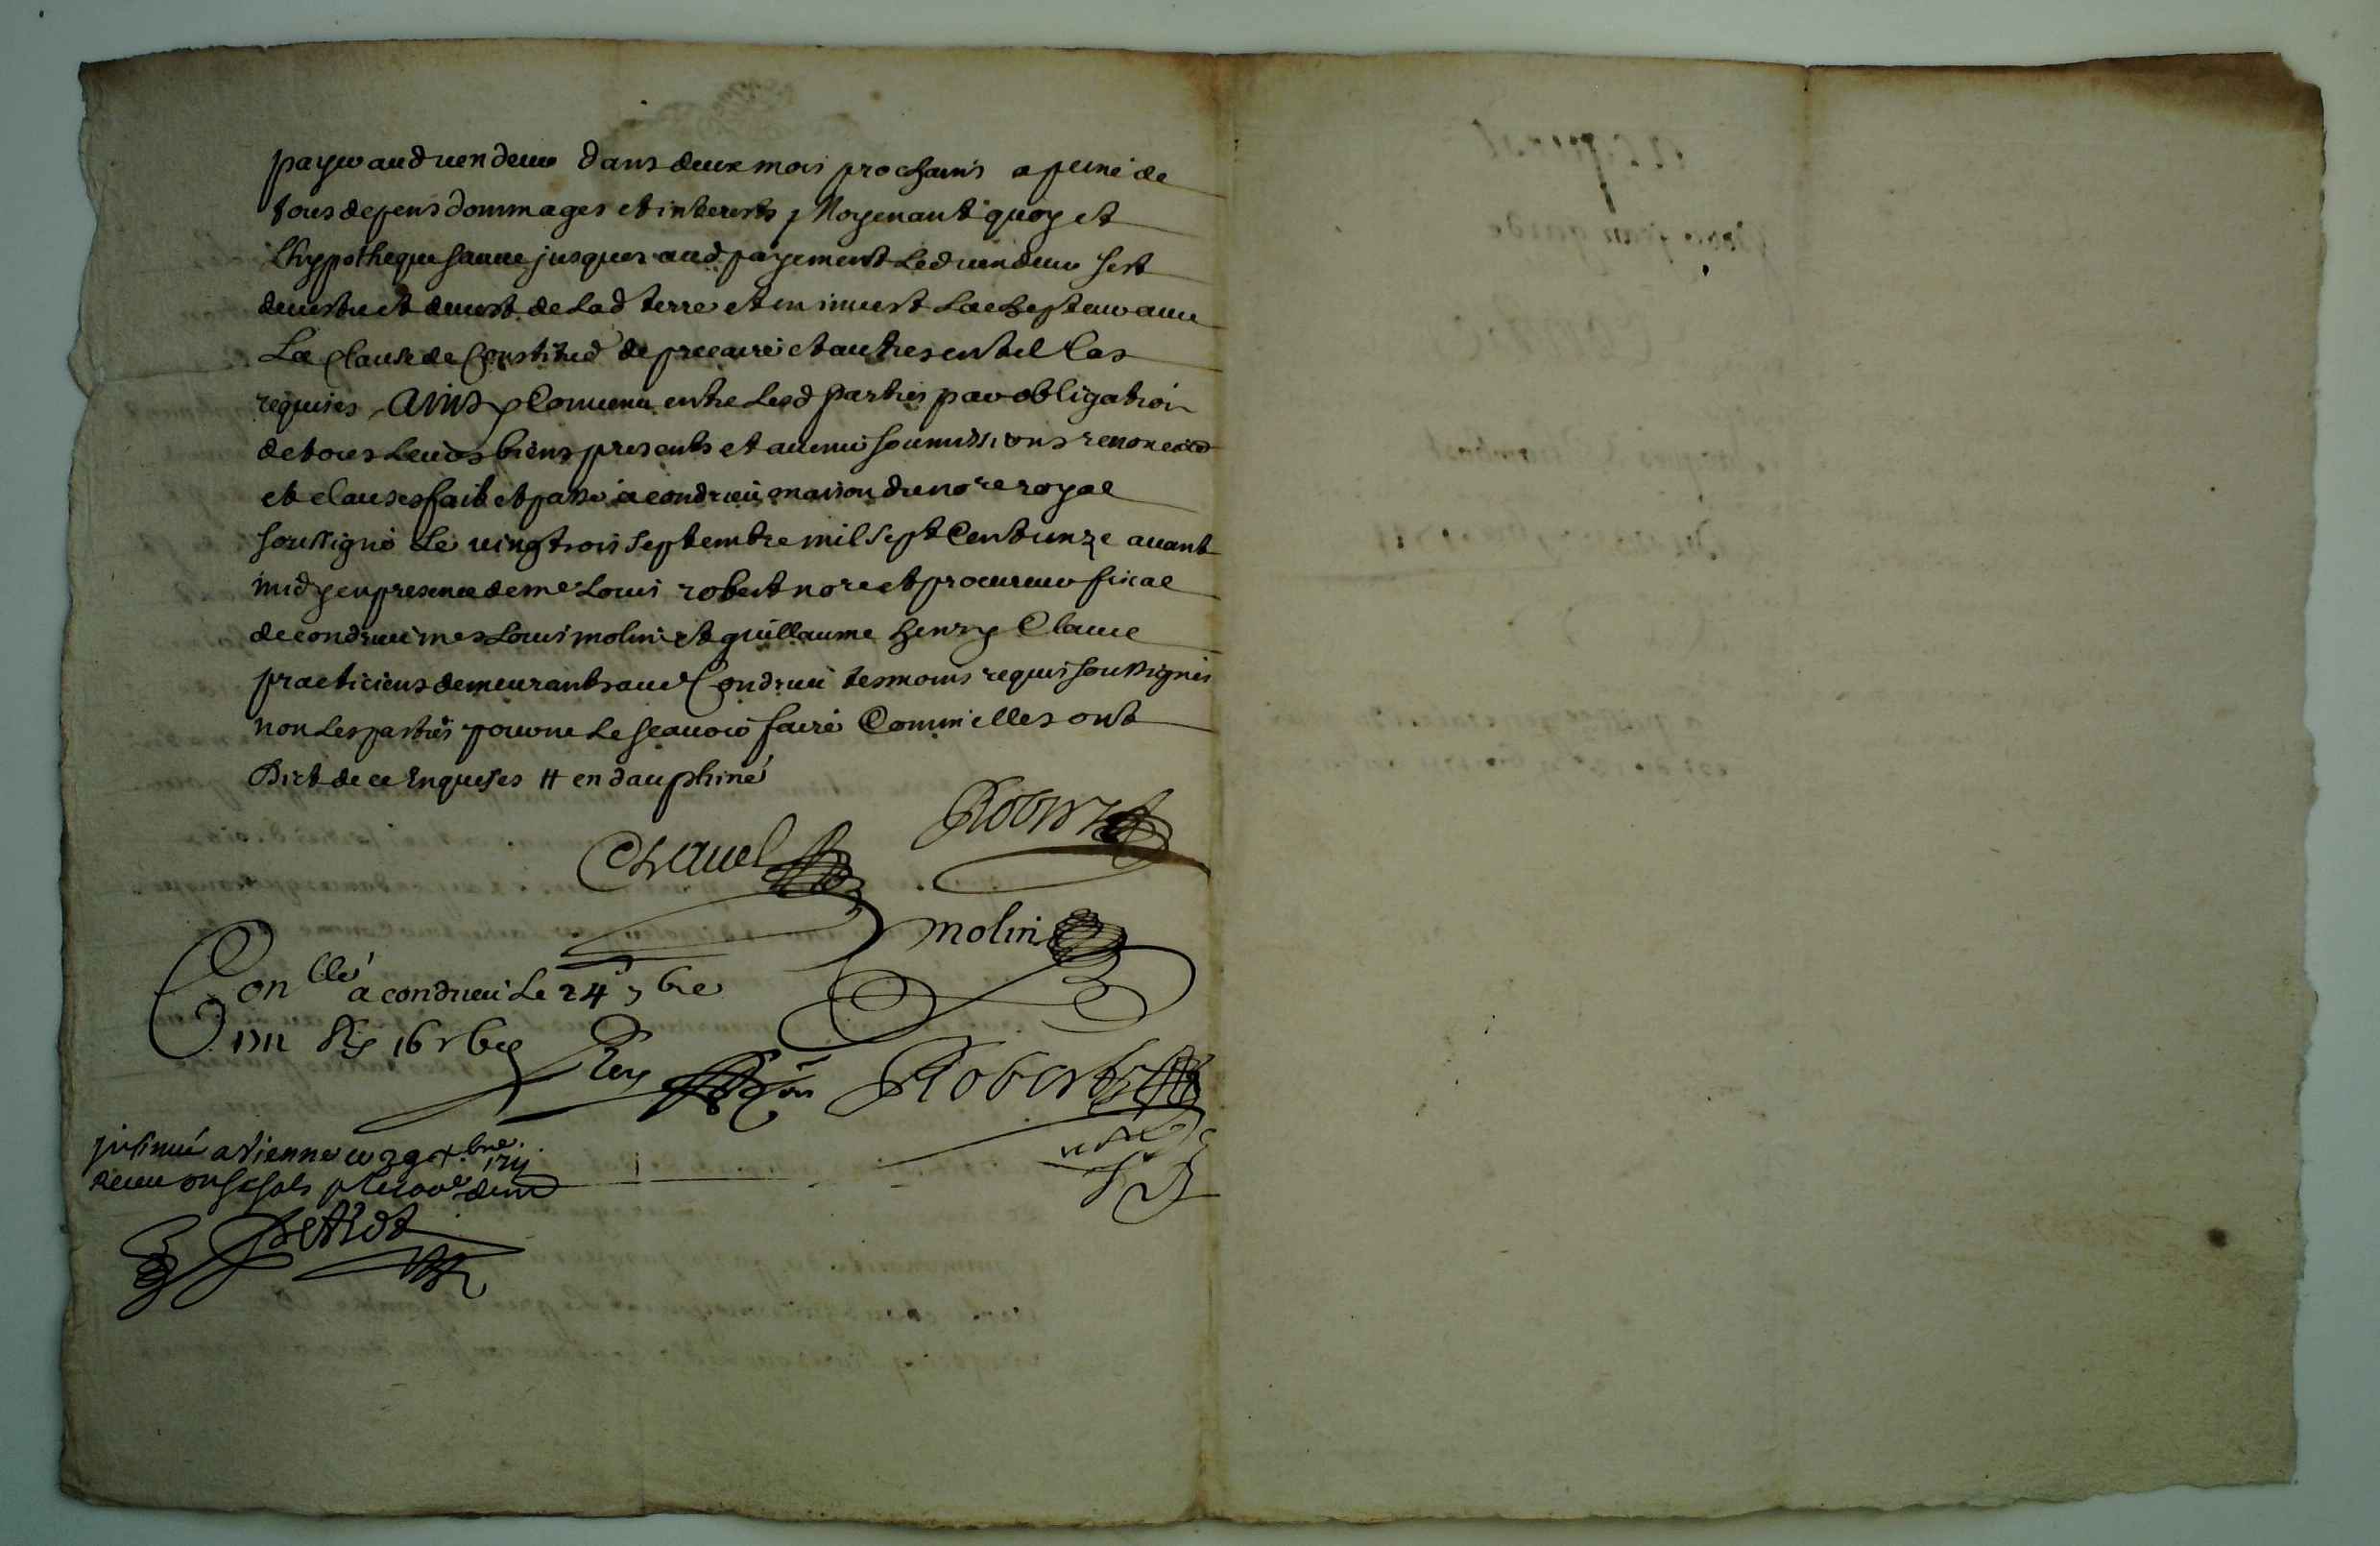 payer aud vendeur dans deux mois prochains a peine de
tous depens dommages et interests, Moyenant quoy et
Lhypotheque sauve jusques aud payement Led vendeur sest
devestu et devest de Lad terre et en invest Lachepteur avec
La Clause de Constitud de precaire et autres en tel Cas
requises, Ainsy Convenu entre Lesd parties par obligation
de tous Leurs biens presents et avenir soumissions renoncia
et clauses fait et passé a condrieu maison du nore royal
soussigné Le vingtrois septembre mil sept Cent unze avant
midy en presence de me Louis robert nore et procureur fiscal
de condrieu mes Louis molin et guillaume henry Clavel
practiciens demeurants aud Condrieu tesmoins requis soussignés
non Les parties pour ne Le scavoir faire Comm'elles ont
Dict de ce Enquises # en dauphiné
Robert
Clavel
molin
Conllé a condrieu Le 24 7bre
1711
Rey
Robert
insinué a Vienne ce 29 xbre 1711
Receu